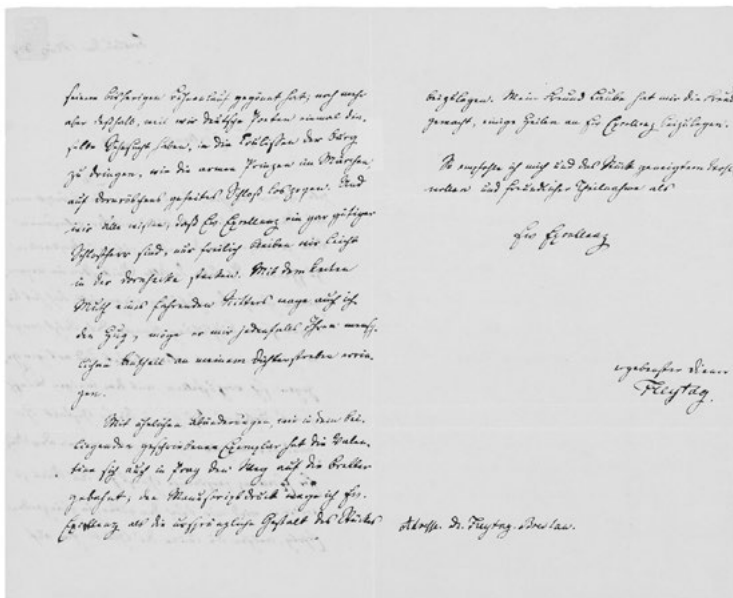 seinem bisherigen Bühnenlauf gegönnt hat; noch mehr
aber deßhalb, weil wir deutsche Poeten einmal die
stille Sehnsucht haben, in die Coulissen der Burg
zu dringen, wie die armen Prinzen im Märchen,
auf Dornröschens gefeites Schloß loszogen. Und
wir Alle wissen, daß Ew Excellenz ein gar gütiger
Schloßherr sind, nur freilich bleiben wir leicht
in der Dornhecke stecken. Mit dem kecken
Muth eines fahrenden Ritters wage auch ich
den Zug, möge er mir jedenfalls Ihren mensch-
lichen Beifall an meinem Dichterstreben errin-
gen.
Mit ähnlichen Abänderungen, wie in dem bei-
liegenden geschriebenen Exemplar hat die Valen-
tine sich auch in Prag den Weg auf die Bretter
gebahnt; den Manuscriptdruck wage ich Ew.
Excellenz als die ursprüngliche Gestalt des Stückes
beizulegen. Mein Freund Laube hat mir die Freude
gemacht, einige Zeilen an Ew Excellenz beizulegen.
So empfehle ich mich und das Stück geneigtem Wohl
wollen und freundlicher Theilnahme als
Ew Excellenz
ergebenster Diener
Freytag.
Adresse. Dr. Freytag. Breslau.